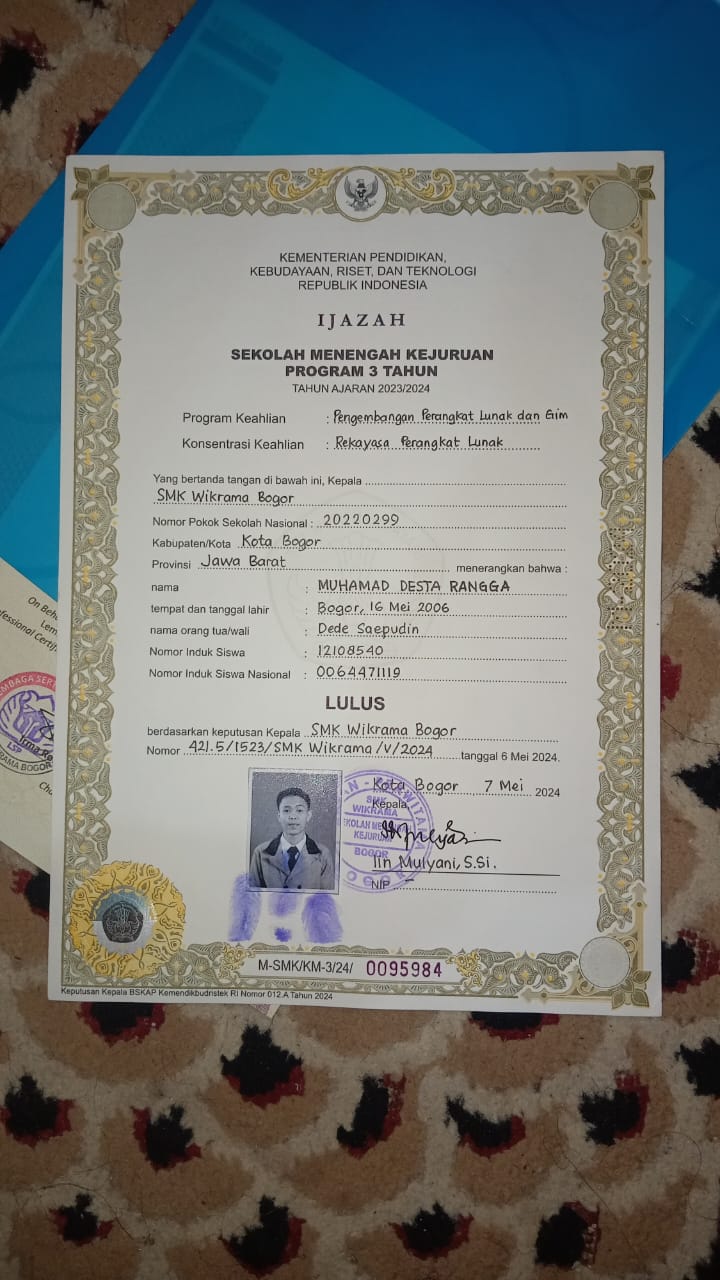 KEMENTERIAN PENDIDIKAN,
KEBUDAYAAN, RISET, DAN TEKNOLOGI
REPUBLIK INDONESIA
IJAZAH
SEKOLAH MENENGAH KEJURUAN
PROGRAM 3 TAHUN
TAHUN AJARAN 2023/2024
Program Keahlian : Pengembangan Perangkat Lunak dan Gim
Konsentrasi Keahlian : Rekayasa Perangkat Lunak
Yang bertanda tangan di bawah ini, Kepala
SMK Wikrama Bogor
Nomor Pokok Sekolah Nasional : 20220299
Kabupaten/Kota Kota Bogor
Provinsi Jawa Barat menerangkan bahwa :
nama : MUHAMAD DESTA RANGGA
tempat dan tanggal lahir : Bogor, 16 Mei 2006
nama orang tua/wali : Dede Saepudin
Nomor Induk Siswa : 12108540
Nomor Induk Siswa Nasional : 0064471119
LULUS
berdasarkan keputusan Kepala SMK Wikrama Bogor
Nomor 421.5/1523/SMK Wikrama/V/2024 tanggal 6 Mei 2024.
Kota Bogor 7 Mei 2024
Kepala,
SMK
WIKRAMA
KEJURUAN
BOGOR
Iin Mulyani, S.Si.
NIP. -
M-SMK/KM-3/24/ 0095984
Keputusan Kepala BSKAP Kemendikbudristek RI Nomor 012.A Tahun 2024
On Beh
Lem
LSP
BOGOR